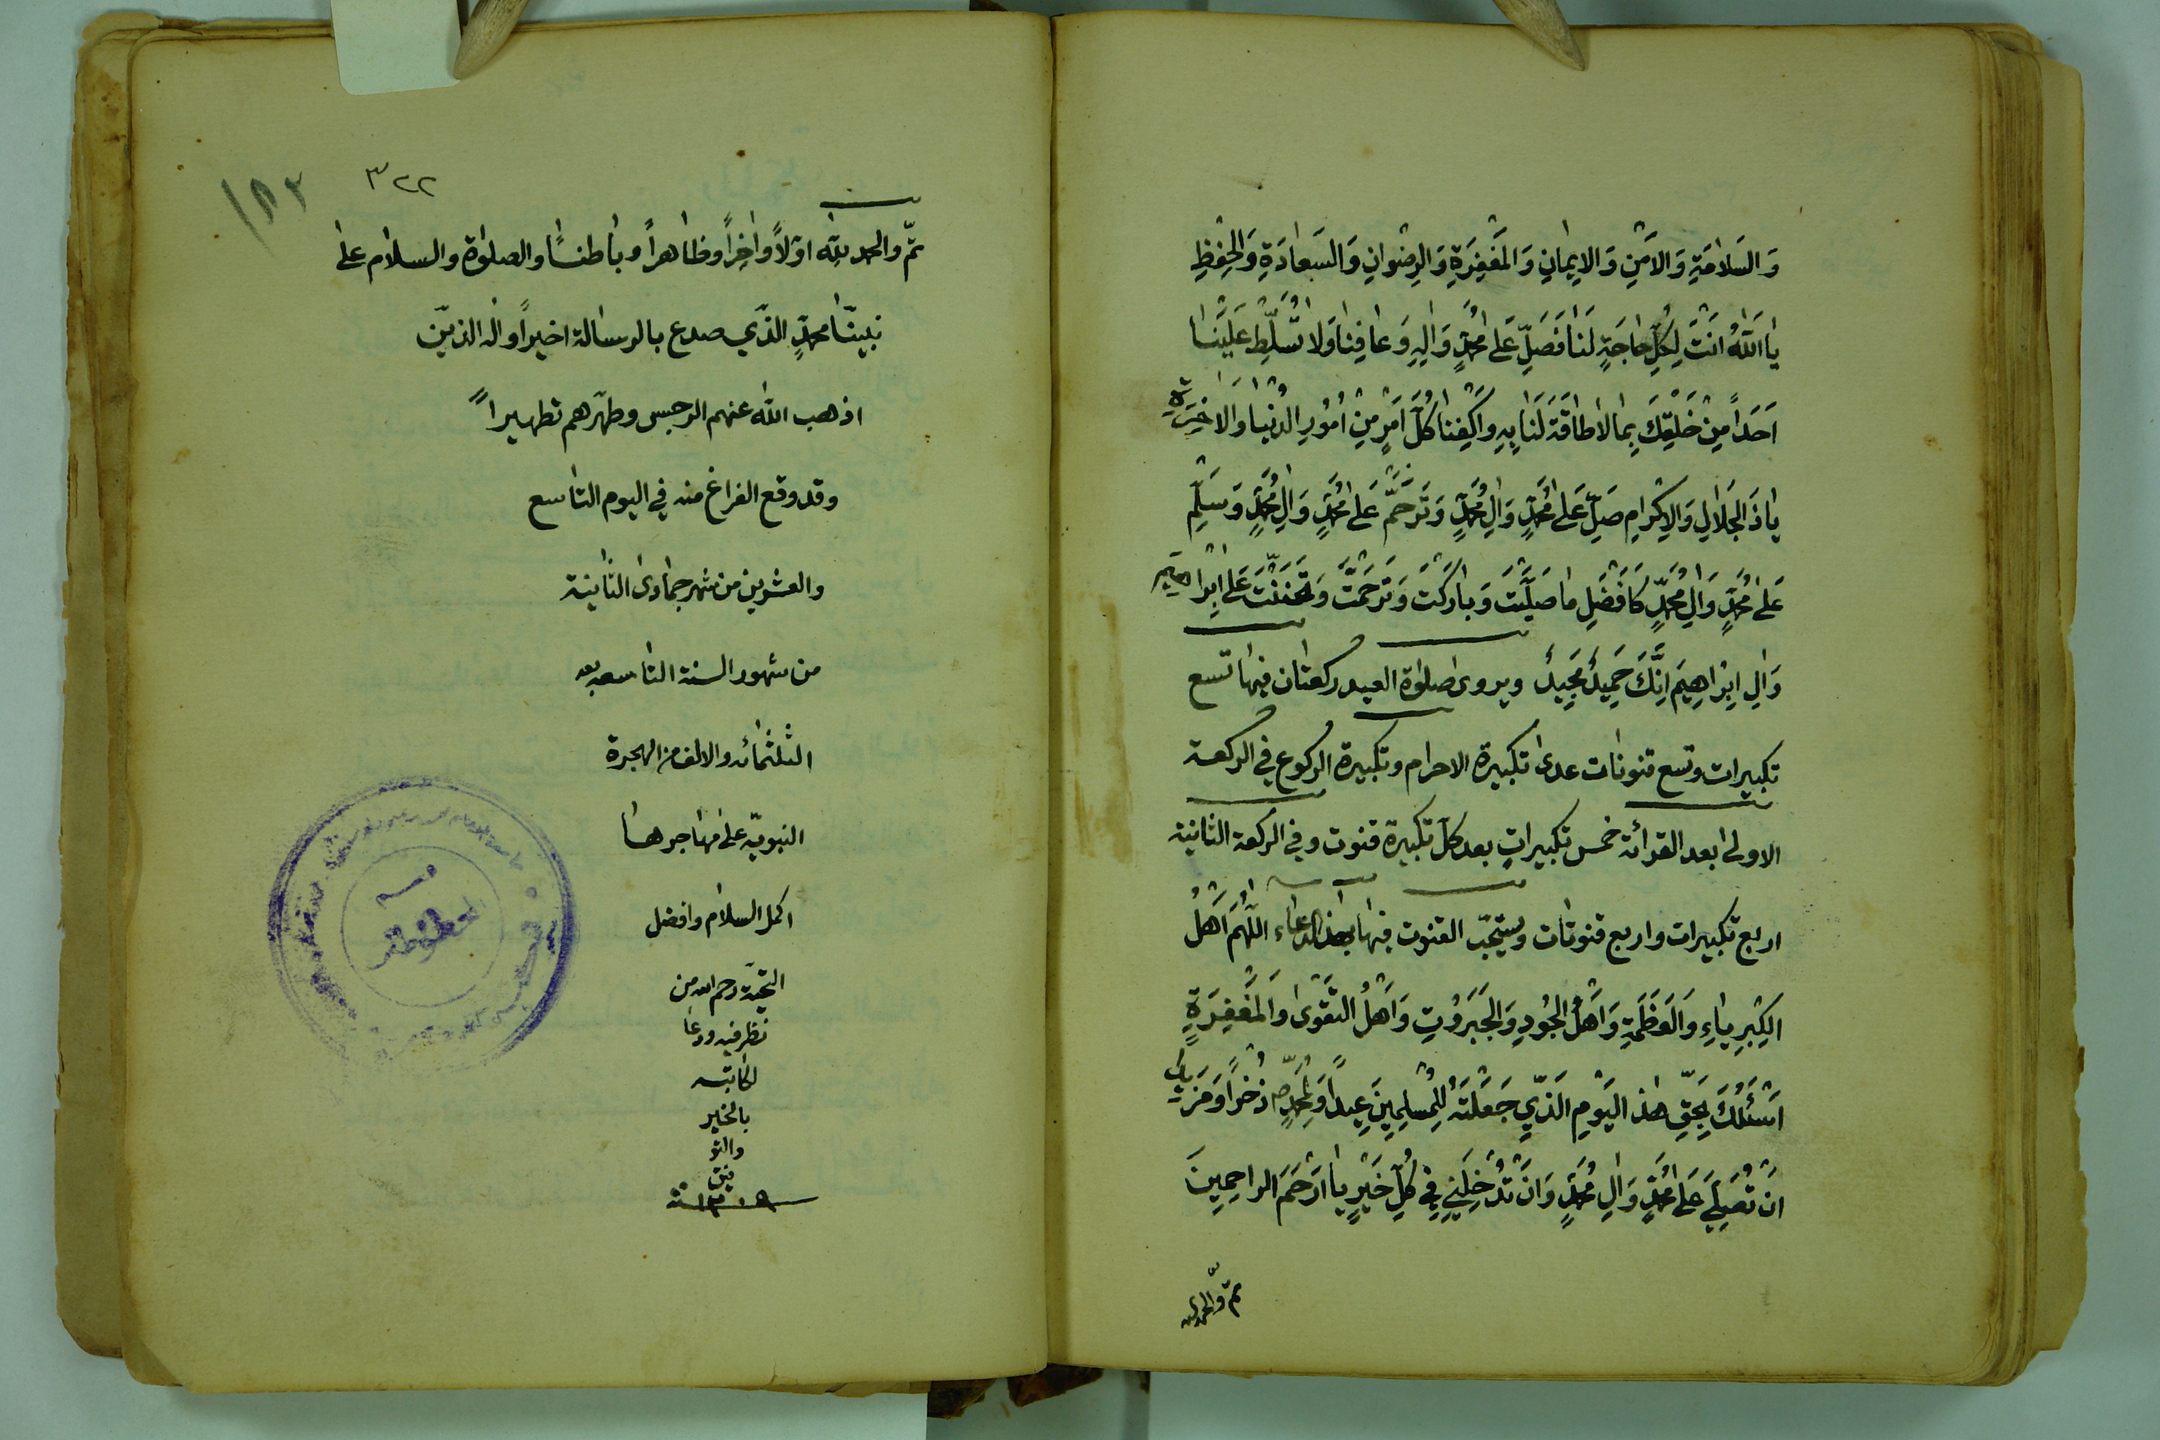 وَالسَّلامَةِ وَالاَمْنِ وَالاِيمانِ وَالمَغْفِرَةِ وَالرِضْوانِ وَالسَعادَةِ وَالحِفْظِ
يا اَللّٰهُ اَنْتَ لِكُلِّ حاجَةٍ لَنا فَصَلِّ عَلىٰ مُحَمَّدٍ وَالِهِ وَعافِنا وَلا تُسَلِّطْ عَلَيْنا
اَحَداً مِنْ خَلْقِكَ بِما لا طاقَةَ لَنا بِهِ وَاكْفِنا كُلَّ اَمْرٍ مِنْ اُمُورِ الدُنْيا وَالاخِرَةِ
يا ذَا الجَلالِ وَالاِكْرامِ صَلِّ عَلىٰ مُحَمَّدٍ وَالِ مُحَمَّدٍ وَتَرَحَّمْ عَلىٰ مُحَمَّدٍ وَالِ مُحَمَّدٍ وَسَلِّمْ
عَلىٰ مُحَمَّدٍ وَالِ مُحَمَّدٍ كَاَفْضَلِ ما صَلَّيْتَ وَبارَكْتَ وَتَرَحَّمْتَ وَتَحَنَّنْتَ عَلىٰ اِبْراهيم
وَالِ اِبْراهِيمَ اِنَّكَ حَمِيدٌ مَجِيدٌ ويروى صلوٰة العيد ركعتان فيها تسع
تكبيرات وتسع قنوتات عدى تكبيرة الاحرام وتكبيرة الركوع في الركعة
الاولى بعد القرائة خمس تكبيراتٍ بعد كل تكبيرة قنوت وفي الركعة الثانية
اربع تكبيرات واربع قنوتات ويستحبّ القنوت فيها بهذا الدعاء اَللّٰهُمَّ اَهْلُ
الكِبْرِياءِ وَالعَظَمَةِ وَاَهْلُ الجُودِ وَالجَبَرُوْتِ وَاَهْلُ التَقْوىٰ وَالمَغْفِرَةِ
اَسْئَلُكَ بِحَقِّ هٰذا اليَوْمِ الَّذي جَعَلْتَهُ لِلْمُسْلِمينَ عِيداً وَلِمُحَمَّدٍ ص ذُخْراً وَمَزيداً
اَنْ تُصَلِّيَ عَلىٰ مُحَمَّدٍ وَالِ مُحَمَّدٍ وَاَنْ تُدْخِلَني في كُلِّ خَيْرٍ يا اَرْحَمَ الراحِمينَ
تم والحمد لله
٣٢٢
١٨٢
تمّ والحمد للّٰه اوّلاً واٰخِراً وظاهراً وباطناً والصلوٰة والسلام على
نبيّنا محمدٍ الذّي صدع بالرسالة اخيراً واٰله الذين
اذهب اللّٰه عنهم الرجس وطهّرهم تطهيراً
وقد وقع الفراغ منه في اليوم التاسع
والعشرين من شهر جمادى الثانية
من شهور السنة التاسعة بعد
الثلثمائه والالف من الهجرة
النبويّه على مهاجرها
اكمل السلام وافضل
التحيّة رحم الله من
نظر فيه ودعا
لكاتبه
بالخير
والتو
فيق
سنة ١٣٠٩